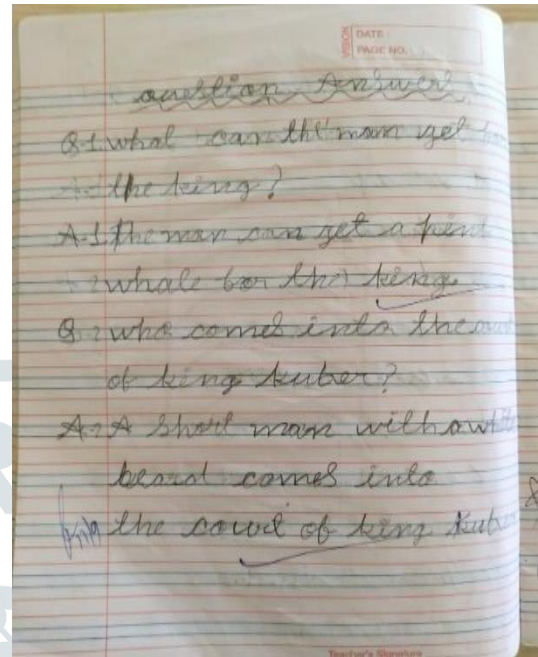 VISION
DATE :
PAGE NO. :
question Answer
Q.1. what can the man get for
the king?
A.1. The man can get a pink
whale for the king.
Q.2 who comes into the
of king kuber?
A.2 A short man with a white
beard comes into
the court of king kuber
Teacher's Signature